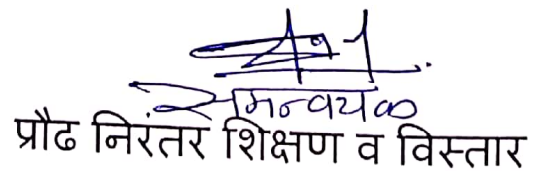 समन्वयक
प्रौढ निरंतर शिक्षण व विस्तार